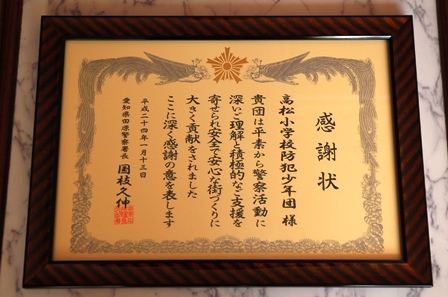 感謝状
高松小学校防犯少年団 様
貴団は平素から警察活動に
深いご理解と積極的なご支援を
寄せられ安全で安心な街づくりに
大きく貢献をされました
ここに深く感謝の意を表します
平成二十四年一月十三日
愛知県田原警察署長 国枝久伸